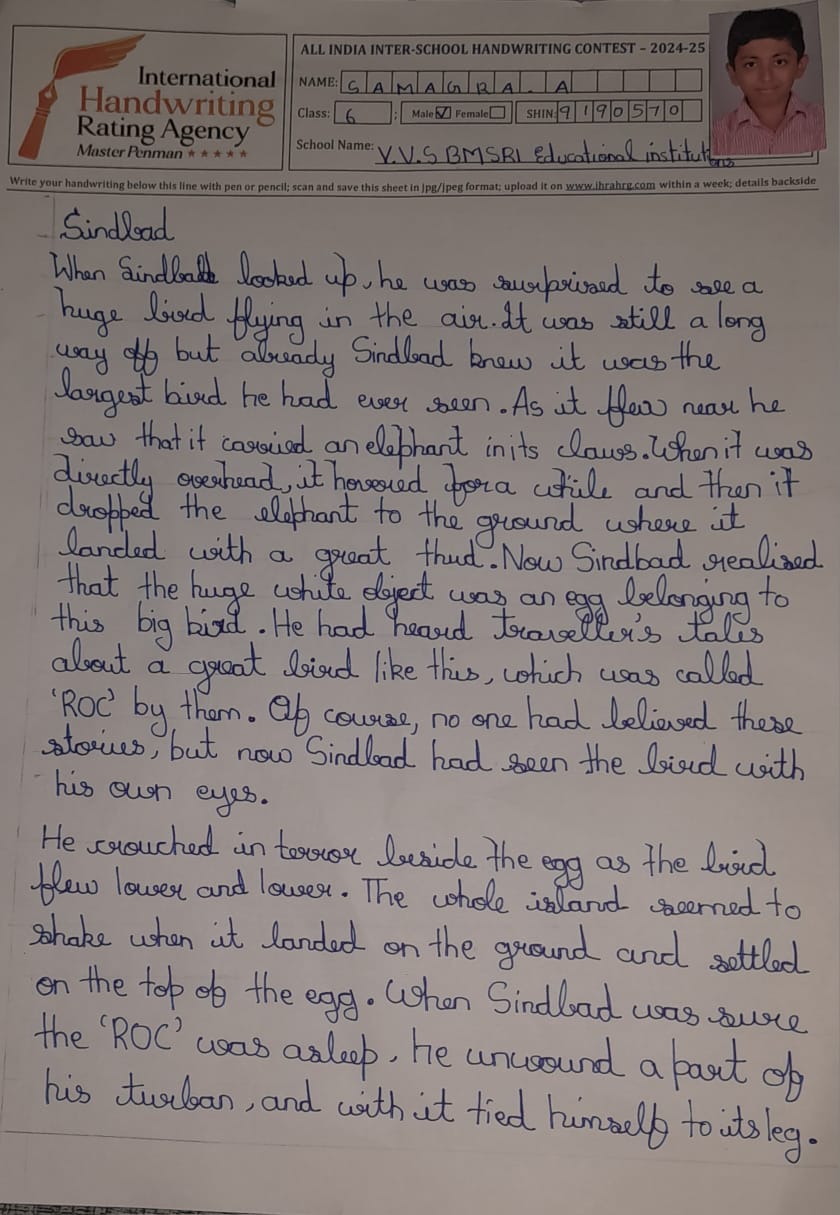 International
Handwriting
Rating Agency
Master Penman ★★★★★
ALL INDIA INTER-SCHOOL HANDWRITING CONTEST – 2024-25
NAME: SAMAGRA. A
Class: 6 ; Male ☑ Female ☐ SHIN: 9190570
School Name: V.V.S BMSRI Educational institutions
Write your handwriting below this line with pen or pencil; scan and save this sheet in jpg/jpeg format; upload it on www.ihrahrg.com within a week; details backside
Sindbad
When Sindbad looked up, he was surprised to see a
huge bird flying in the air. It was still a long
way off but already Sindbad knew it was the
largest bird he had ever seen. As it flew near he
saw that it carried an elephant in its claws. When it was
directly overhead, it hovered for a while and then it
dropped the elephant to the ground where it
landed with a great thud. Now Sindbad realised
that the huge white object was an egg belonging to
this big bird. He had heard traveller's tales
about a great bird like this, which was called
'ROC' by them. Of course, no one had believed these
stories, but now Sindbad had seen the bird with
his own eyes.
He crouched in terror beside the egg as the bird
flew lower and lower. The whole island seemed to
shake when it landed on the ground and settled
on the top of the egg. When Sindbad was sure
the 'ROC' was asleep, he unwound a part of
his turban, and with it tied himself to its leg.